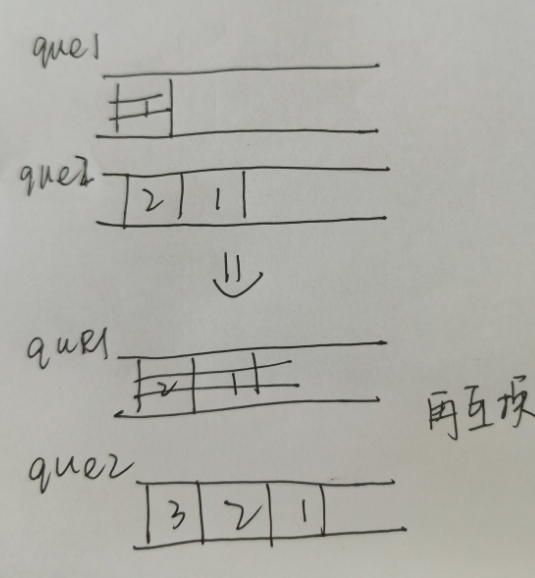 que1
1
que2
2 1
que1
2 1
再互换
que2
3 2 1